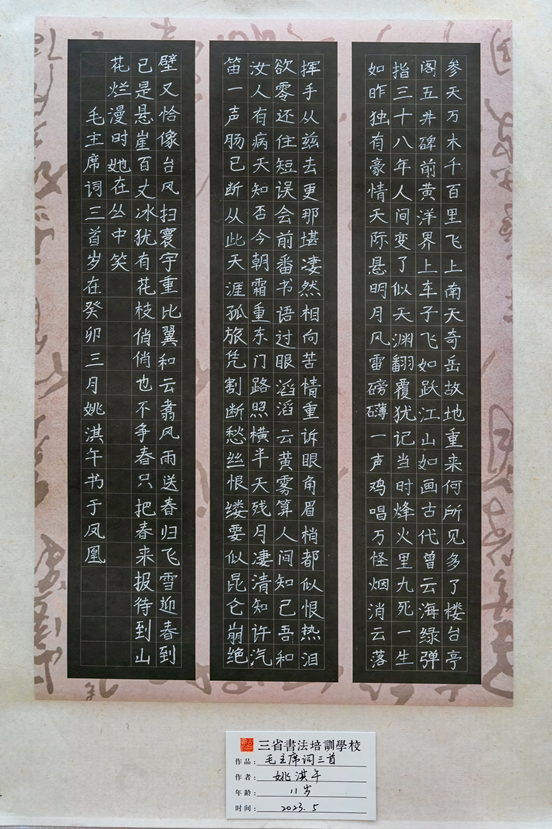 参天万木千百里飞上南天奇岳故地重来何所见多了楼台亭
阁五井碑前黄洋界上车子飞如跃江山如画古代曾云海绿弹
指三十八年人间变了似天渊翻覆犹记当时烽火里九死一生
如昨独有豪情天际悬明月风雷磅礴一声鸡唱万怪烟消云落
挥手从兹去更那堪凄然相向苦情重诉眼角眉梢都似恨热泪
欲零还住知误会前番书语过眼滔滔云黄雾算人间知己吾和
汝人有病天知否今朝霜重东门路照横半天残月凄清如许汽
笛一声肠已断从此天涯孤旅凭割断愁丝恨缕要似昆仑崩绝
壁又恰像台风扫寰宇重比翼和云翥风雨送春归飞雪迎春到
已是悬崖百丈冰犹有花枝俏俏也不争春只把春来报待到山
花烂漫时她在丛中笑
毛主席词三首岁在癸卯三月姚淇午书于凤凰
三省書法培訓學校
作品：毛主席词三首
作者：姚淇午
年齡：11岁
时间：2023.5